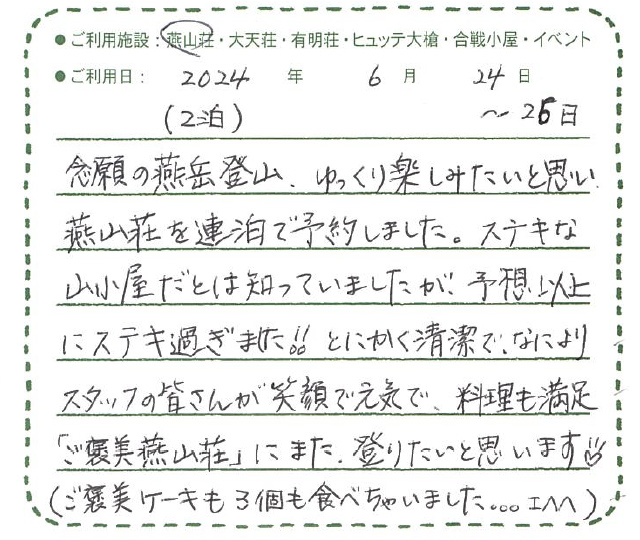 ●ご利用施設：燕山荘・大天荘・有明荘・ヒュッテ大槍・合戦小屋・イベント
●ご利用日： 2024 年 6 月 24 日
(2泊) 〜26日
念願の燕岳登山、ゆっくり楽しみたいと思い、
燕山荘を連泊で予約しました。ステキな
山小屋だとは知っていましたが、予想以上
にステキ過ぎました!! とにかく清潔で、なにより
スタッフの皆さんが笑顔で元気で、料理も満足
「ご褒美燕山荘」にまた、登りたいと思います
(ご褒美ケーキも3個も食べちゃいました…エヘヘ)